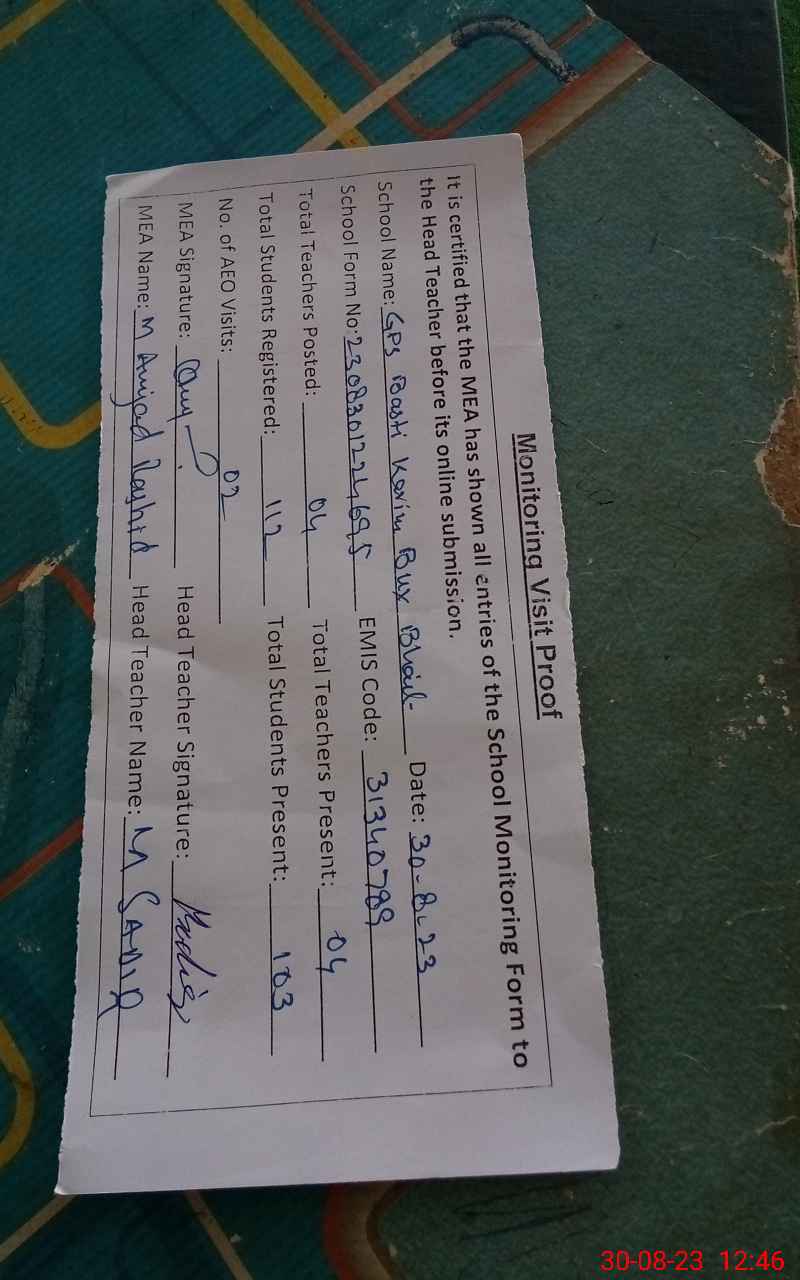 Monitoring Visit Proof
It is certified that the MEA has shown all entries of the School Monitoring Form to
the Head Teacher before its online submission.
School Name: GPS Basti Karim Bux Bhail Date: 30-8-23
School Form No: 2308301224695 EMIS Code: 31340789
Total Teachers Posted: 04 Total Teachers Present: 04
Total Students Registered: 112 Total Students Present: 103
No. of AEO Visits: 02
MEA Signature: Head Teacher Signature:
MEA Name: M Amjad Rashid Head Teacher Name: M SADIQ
30-08-23 12:46